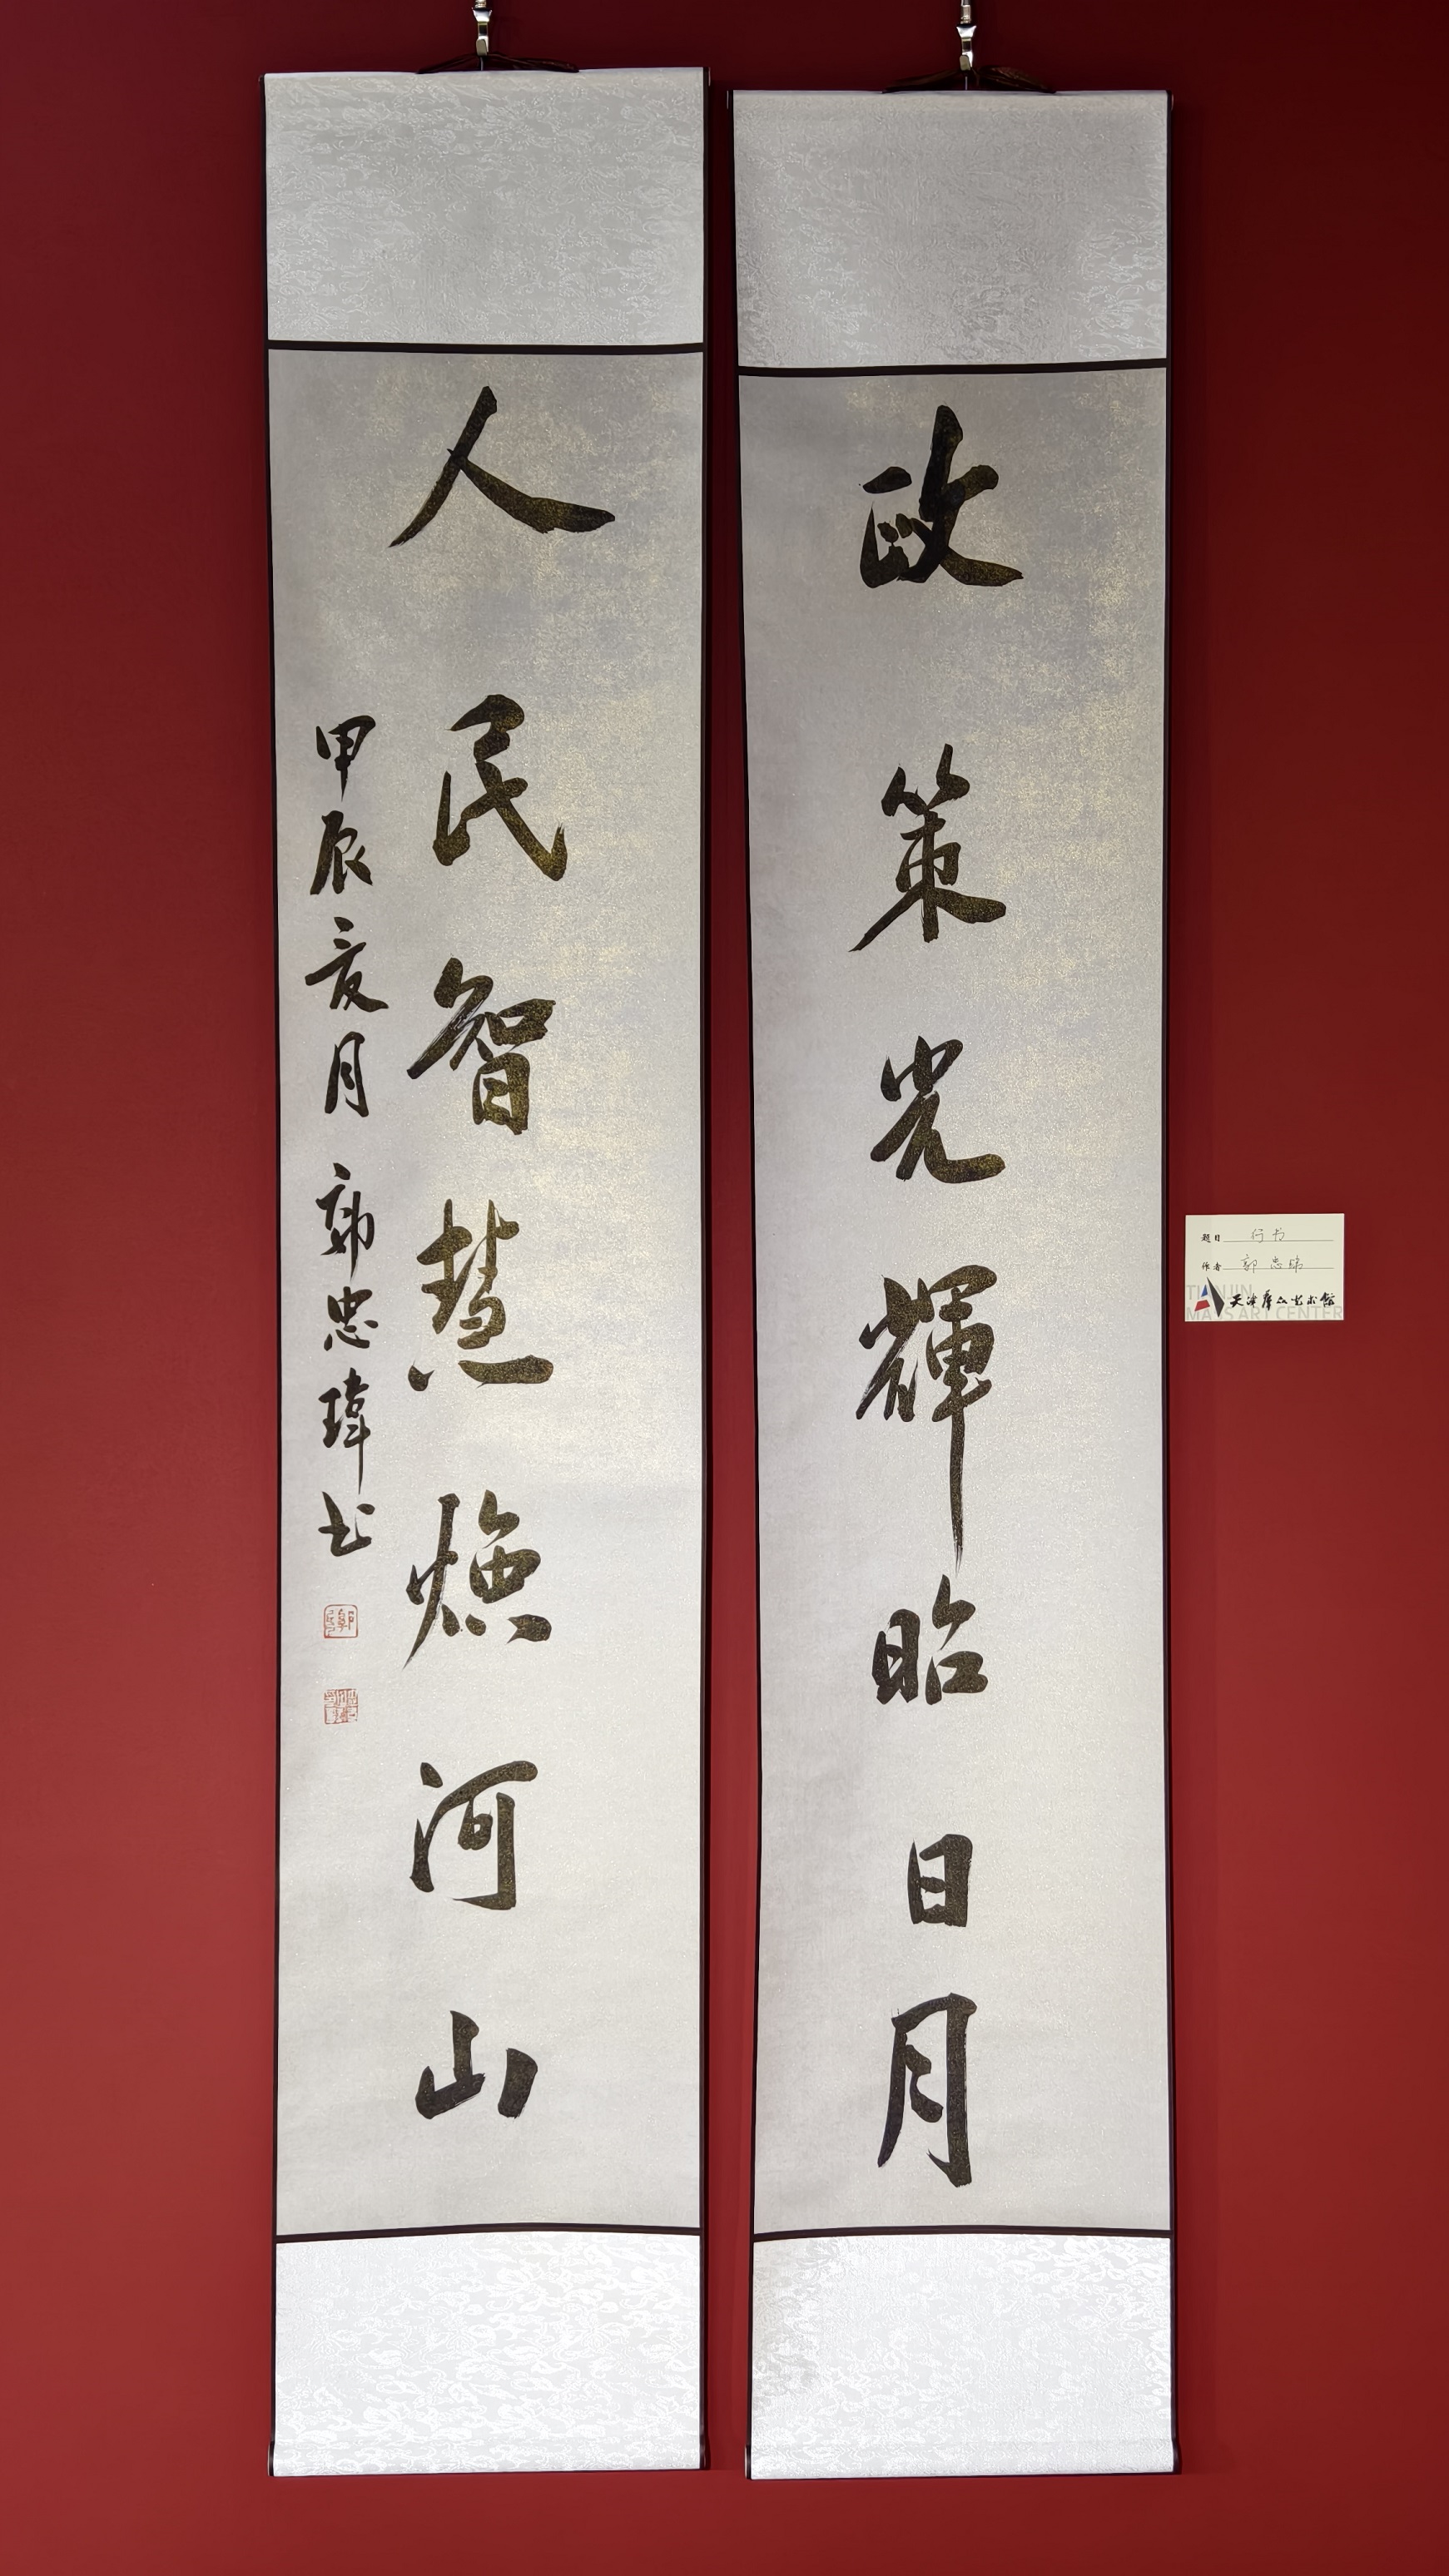 政策光輝昭日月
人民智慧焕河山
甲辰夏月 郭忠瑋书
题目 行书
作者 郭忠瑋
天津群众艺术馆
TIANJIN
MASS ART CENTER